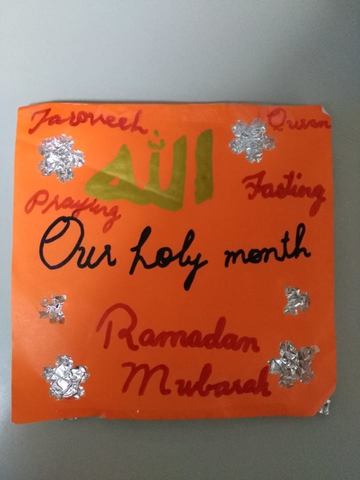 Taroveeh Quran
الله
Praying Fasting
Our holy month
Ramadan
Mubarak